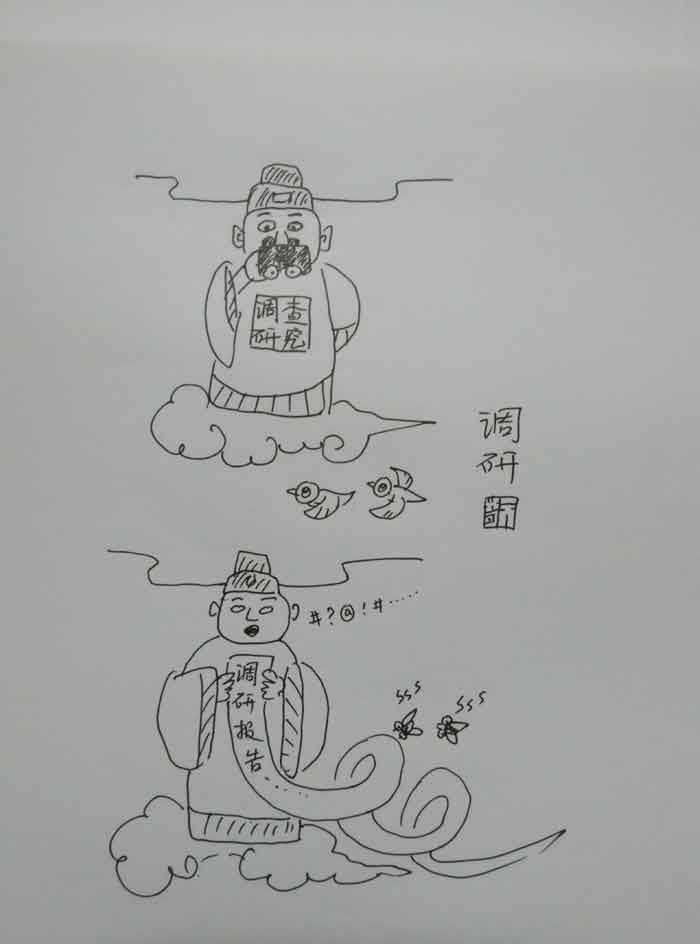 调查
研究
调
研
#?@!#……
调
研
报
告……
sss
sss